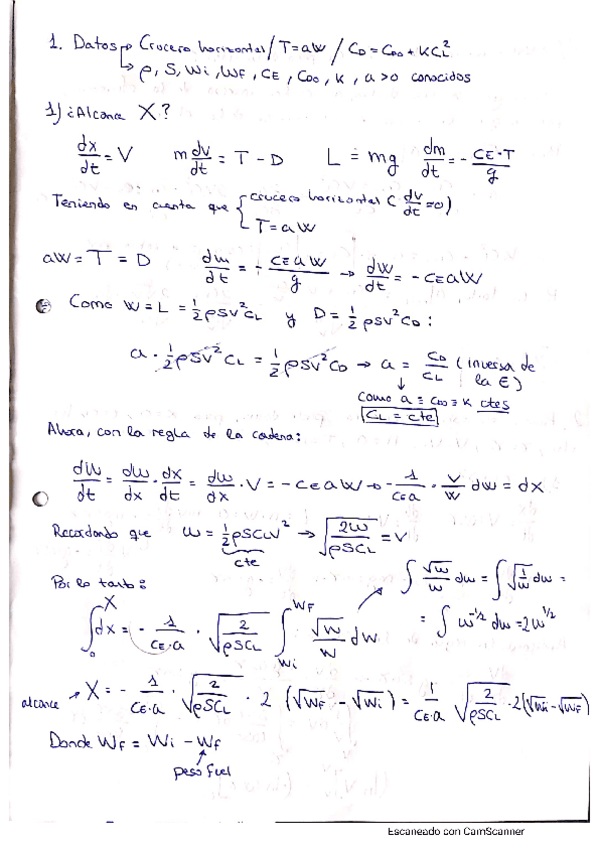 1. Datos → Crucero horizontal / T=aW / CD = CD0 + KCL²
→ ρ, S, Wi, WF, CE, CD0, K, a>0 conocidos
1) ¿Alcance X?
dx/dt = V   m dv/dt = T - D   L = mg   dm/dt = - CE·T/g
Teniendo en cuenta que { crucero horizontal (dv/dt = 0)
T = aW
aW = T = D   dm/dt = - CE a W/g → dW/dt = - CE a W
Como W = L = 1/2 ρSV²CL y D = 1/2 ρSV²CD :
a · 1/2 ρSV²CL = 1/2 ρSV²CD → a = CD/CL (inversa de la E)
↓
como a = CD0 = K ctes
CL = cte
Ahora, con la regla de la cadena:
dW/dt = dw/dx · dx/dt = dw/dx · V = - CE a W → - 1/CEa · V/W dw = dx
Recordando que W = 1/2 ρSCLV² → √(2W/ρSCL) = V
cte
Por lo tanto :
∫ √w/w dw = ∫ √(1/w) dw =
= ∫ w^-1/2 dw = 2w^1/2
∫₀^X dx = - 1/CE·a · √(2/ρSCL) ∫_Wi^WF √W/W dW
alcance → X = - 1/CE·a · √(2/ρSCL) · 2 (√WF - √Wi) = 1/CE·a √(2/ρSCL) · 2(√Wi - √WF)
Donde WF = Wi - WF
peso fuel
Escaneado con CamScanner